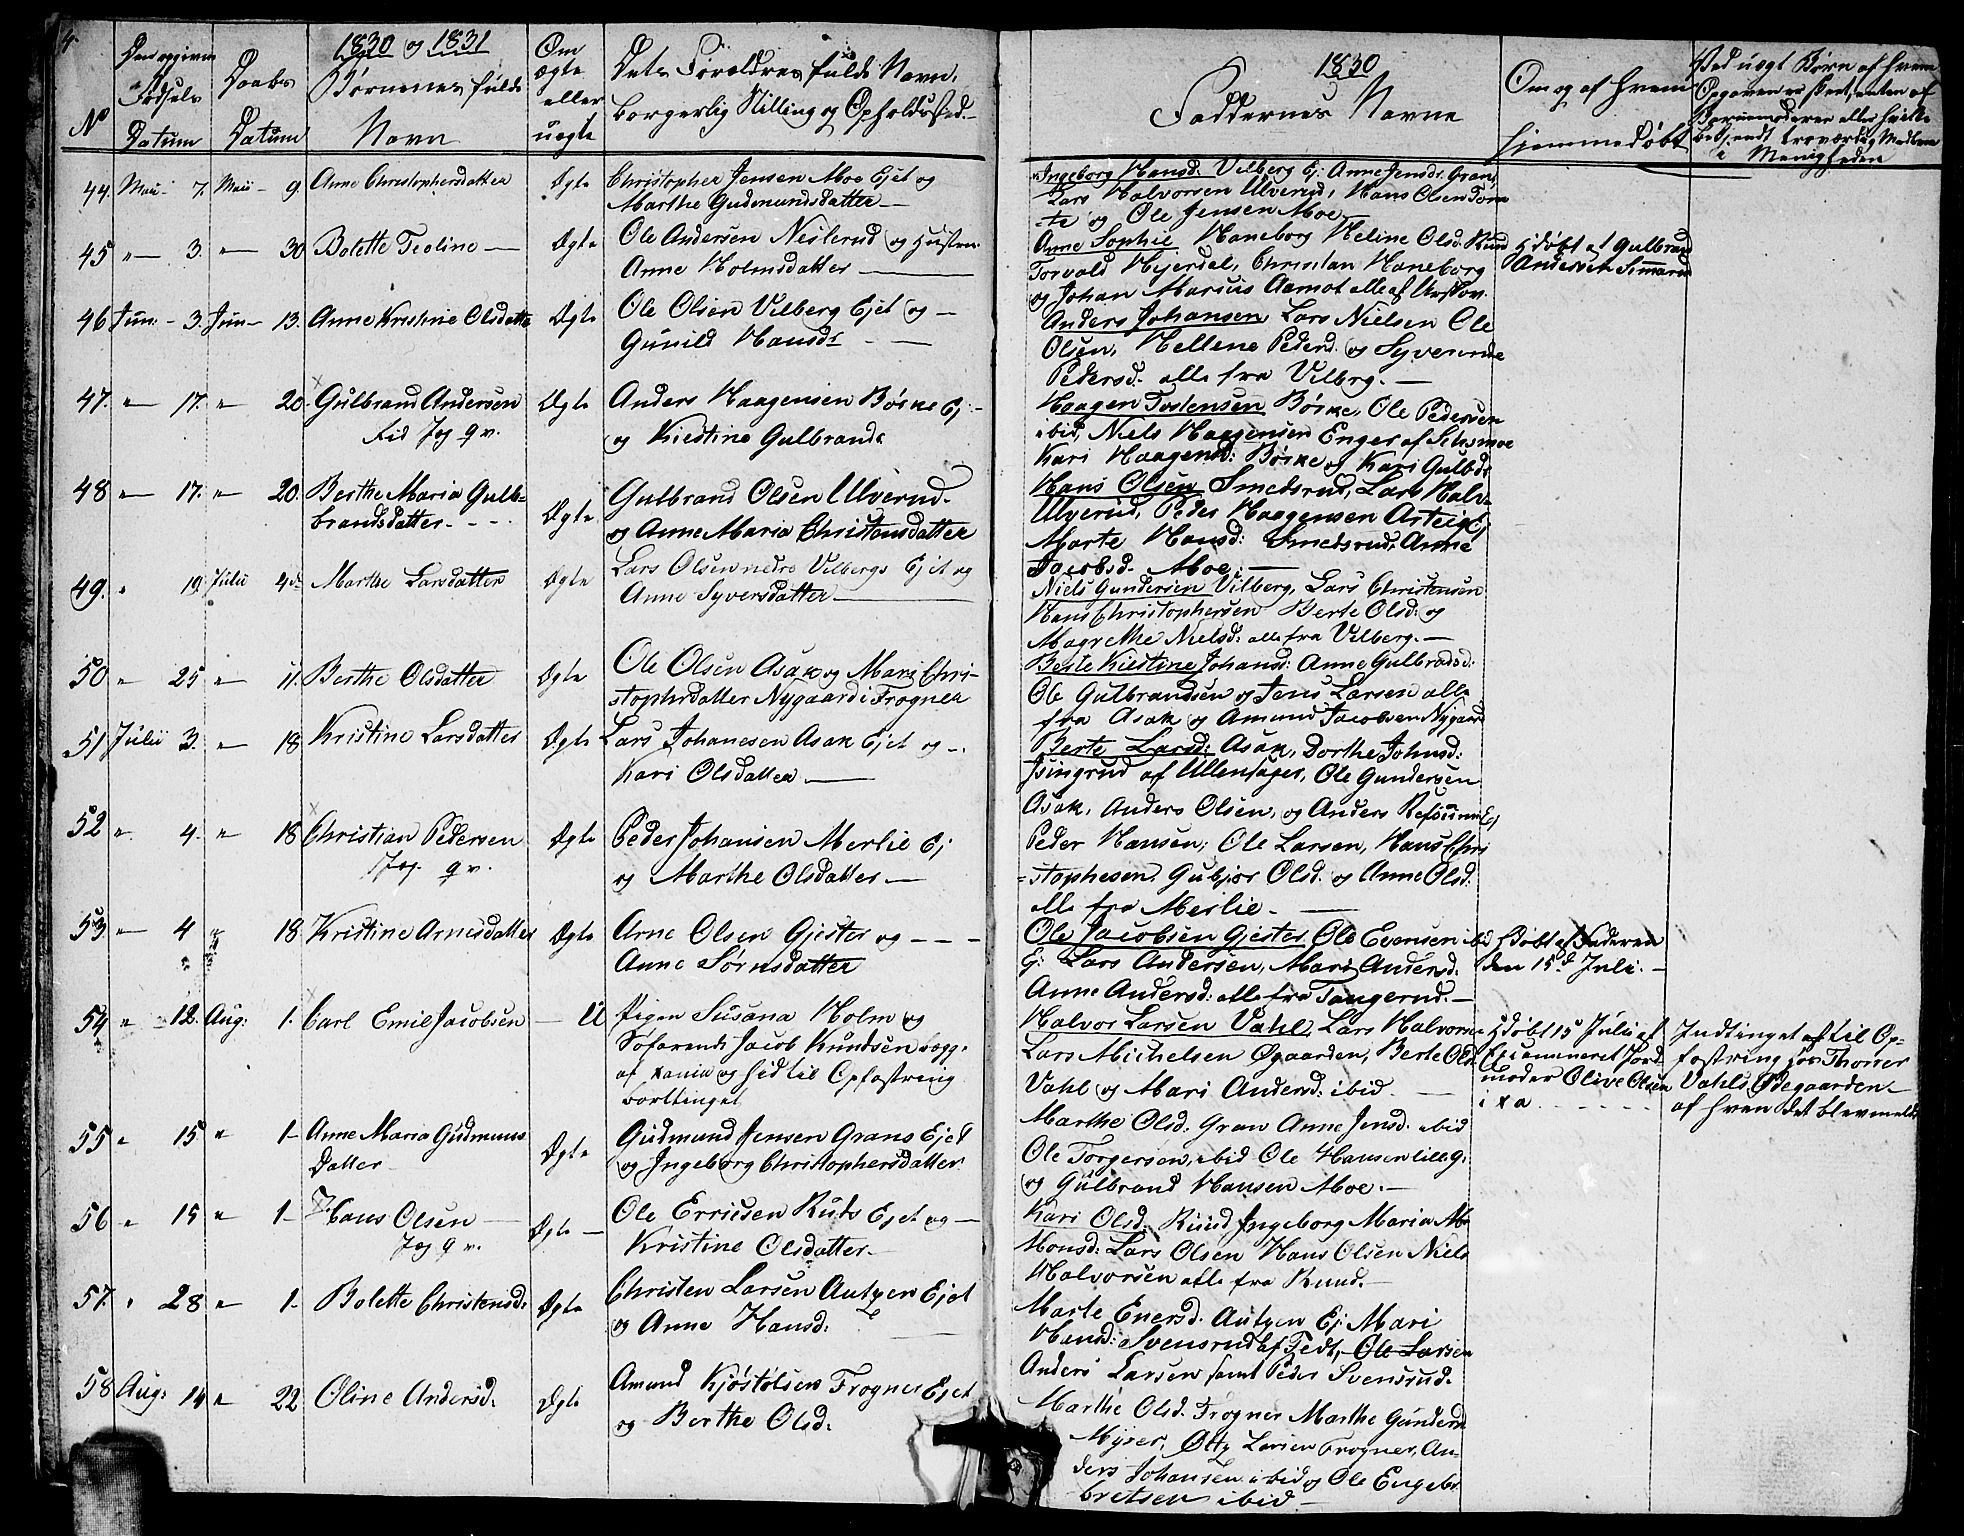 4.
1830 og 1831
No
Den opgivne Fødsels Datum
Daabs Datum
Børnenes fulde Navn
Om ægte eller uægte
Dets Forældres fulde Navn, borgerlig Stilling og Opholdssted
1830
Faddernes Navne
Om og af hvem hjemmedøbt
Ved uægt Børn af hvem Opgaven er skeet, enten af Barnemoderen eller hvilke bekjendt troværdig Medlem i Menigheden
44. Maii 7. Maii 9. Anne Christophersdatter Ægte Christopher Jensen Moe Ejet og
Marthe Gudmundsdatter
Ingeborg Hansd. Vilberg Ej: Anne Jensdr. Gran,
Lars Halvorsen Ulverud, Hans Olsen
og Ole Jensen Moe
45 " 3. " 30 Bolette Teoline Ægte Ole Andersen Neslerud og Hustru
Anne Holmsdatter
Anne Sophie Haneborg Heline Olsd. Rund
Torvald Hejerdal, Christian Haneborg
og Johan Marcus Aamot alle af Urskov.
Hdøbt af Gulbrand
Andersen
46 Jun: 3. Jun 13. Anne Kristine Olsdatter Ægte Ole Olsen Vilberg Ejet og
Gunild Hansdr
Anders Johansen, Lars Nielsen Ole
Olsen, Hellene Peders. og Syverine
Pedersd. alle fra Vilbrg.
47. " 17. " 20. Gulbrand Andersen Ægte Anders Haagensen Børke Ej
Fid Jag 9 v.
og Kiestine Gulbrands
Haagen Tostensen Børke, Ole Pedersen
ibid, Niels Haagensen Enger af
Kari Haagensd: Børke og Kari Gulbds
48 " 17. " 20. Berthe Maria Gulb-
brandsdatter. Ægte Gulbrand Olsen Ulverud
og Anne Maria Christensdatter
Hans Olsen Smedsrud, Lars Halv.
Ulverud, Peder Haagensen Asteig Ej
Marte Hansd: Smedsrud, Anne
Jacobsd. Moe.
49. " 19 Julii 4de Marthe Larsdatter Ægte Lars Olsen nedre Vilbergs Ejet og
Anne Syversdatter
Niels Gundersen Vilberg, Lars Christensen
Hans Christophersen Berte Olsd: og
Magrethe Nielsd: alle fra Vilberg.
50 " 25 " 11. Berthe Olsdatter Ægte Ole Olsen Asak og Mari Chri-
stophrdatter Nygaard i Frogner
Berte Kiestine Johansd: Anne Gulbradsd:
Ole Gulbrandsen og Jens Larsen alle
fra Asak og Amund Jacobsen Nygaard
51 Julii 3. " 18 Kristine Larsdatter Ægte Lars Johanesen Asak Ejet og
Kari Olsdatter
Berte Larsd: Asak, Dorthe Johnsd:
Isingrud af Ullensager, Ole Gundersen
Asak, Anders Olsen, og Anders Refsum Ej
52 " 4. " 18 Christian Pedersen Ægte Peder Johansen Merlie Ej
Jag. 9 v.
og Marthe Olsdatter
Peder Hansen, Ole Larsen, Hans Chri
stophesen Gubjør Olsd. og Anne Olsd.
alle fra Merlie.
53 " 4 " 18 Kristine Arnesdatter Ægte Arne Olsen Gjester og
Anne Sørnsdatter
Ole Jacobsen Gjester, Ole Evensen ibid
Ej: Lars Andersen, Mari Andersd.
Anne Andersd: alle fra Tangerud.
Hdøbt af Faderen
den 15d Juli.
54 " 12. Aug: 1. Carl Emil Jacobsen U Pigen Susana Holm og
Søfarende Jacob Knudsen begge
af Xania og hid til Opfostring
borttinget
Halvor Larsen Vahl, Lars Halvorsen
Lars Michelsen Øgaarden, Berte Olsd
Vahl og Mari Andersd: ibid.
Hdøbt 15 Julii af
Examineret Jord-
moder Olive Olsen
i Xa
Indtinget af til Op-
fostring hos Thorer
Vahls Ødegaarden
af hven det blev meldt
55 " 15 " 1 Anne Maria Gudmuns
Datter Ægte Gudmund Jensen Grans Ejet
og Ingeborg Christophersdatter
Marthe Olsd: Gran Anne Jensd. ibid
Ole Torgersen, ibid Ole Hansen lilleG.
og Gulbrand Hansen Moe.
56 " 15 " 1 Hans Olsen Ægte Ole Erricsen Ruds Ejet og
Jag 9 v.
Kristine Olsdatter
Kari Olsd: Ruud Ingeborg Maria
Monsd: Lars Olsen Hans Olsen Niels
Halvorsen alle fra Ruud.
57. " 28 " 1 Bolette Christensd: Ægte Christen Larsen Autgen Ejet
og Anne Hansd:
Marte Enersd. Autgen Ej: Mari
Hansd: Svensrud af Fedt, Ole Larsen
Anders Larsen samt Peder Svensrud.
58 Aug: 14 " 22 Oline Andersd. Ægte Amund Kjøstolsen Frogner Ejet
og Berthe Olsd:
Marthe Olsd. Frogner Marthe Gundersd
Myrer, Otty Larsen Frogner, An-
ders Johansen ibid og Ole Engeb
bretsen ibid